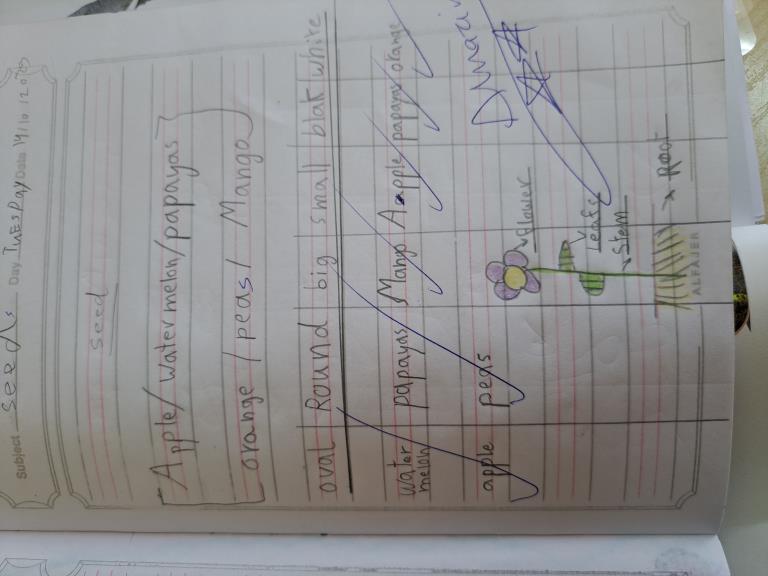 Subject seeds Day Tuesday Date
seed
Apple/ watermelon/papayas
orange /peas/ Mango
oval Round big small blak white
water melon papayas Mango Apple papayas orange
apple peas
flower
Leafs
Stem
Root
ALFAJER